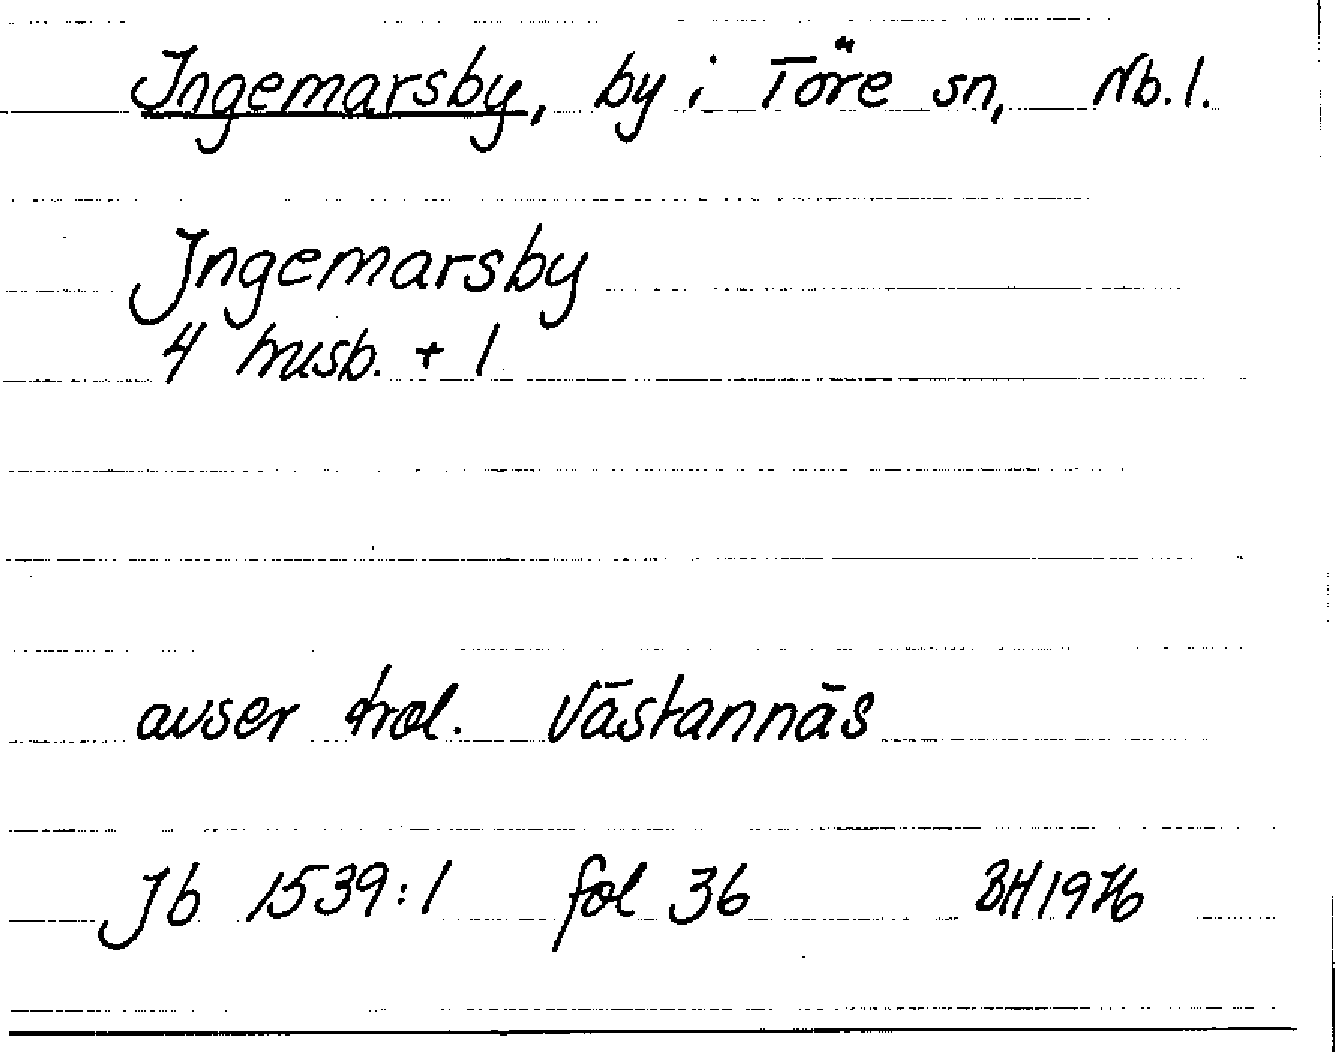 Ingemarsby, by i Töre sn, Nb.l.
Ingemarsby
4 husb. + 1
avser trol. Västannäs
Jb 1539:1 fol 36 BH 1976